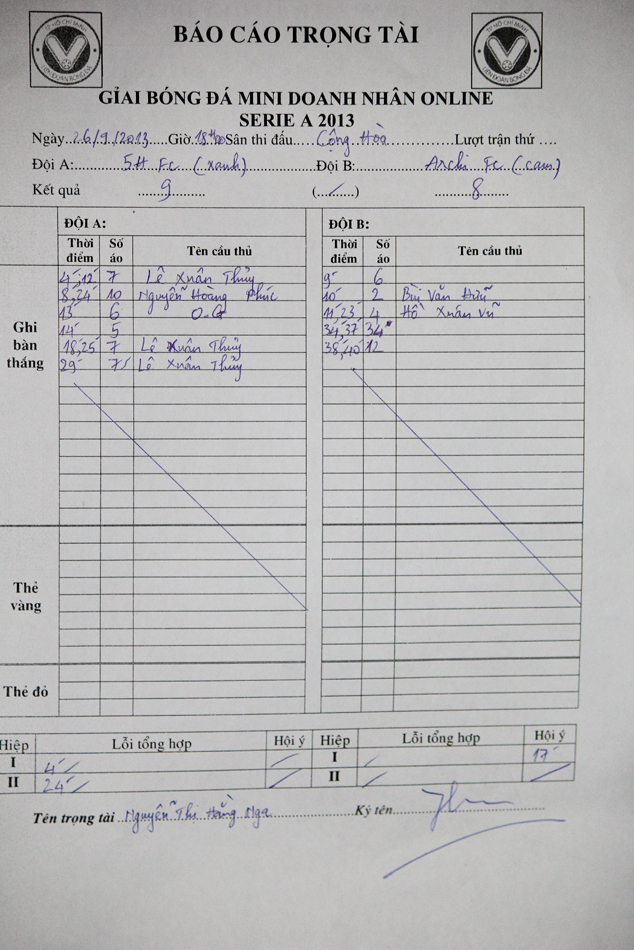 TP HỒ CHÍ MINH
LIÊN ĐOÀN BÓNG ĐÁ
BÁO CÁO TRỌNG TÀI
TP HỒ CHÍ MINH
LIÊN ĐOÀN BÓNG ĐÁ
GIẢI BÓNG ĐÁ MINI DOANH NHÂN ONLINE
SERIE A 2013
Ngày..26/9./2013..Giờ.18H00 Sân thi đấu....Cộng Hòa..............Lượt trận thứ ....
Đội A:..........5H F.c (xanh)..........Đội B:..........Archi F.c (cam)
Kết quả ........9........ (../..) ........8........
ĐỘI A: ĐỘI B:
Thời điểm Số áo Tên cầu thủ Thời điểm Số áo Tên cầu thủ
Ghi bàn thắng
4', 12' 7 Lê Xuân Thủy 9' 6
8', 24' 10 Nguyễn Hoàng Phúc 10' 2 Bùi Văn Hữu
13' 6 O.G 11', 23' 4 Hồ Xuân Vũ
14' 5 34', 37' 34
18', 25' 7 Lê Xuân Thủy 38', 40' 12
29' 7 Lê Xuân Thủy
Thẻ vàng
Thẻ đỏ
Hiệp Lỗi tổng hợp Hội ý Hiệp Lỗi tổng hợp Hội ý
I 4' / / I / 17'
II 24' / / II / /
Tên trọng tài ..Nguyễn Thị Hằng Nga..........Ký tên